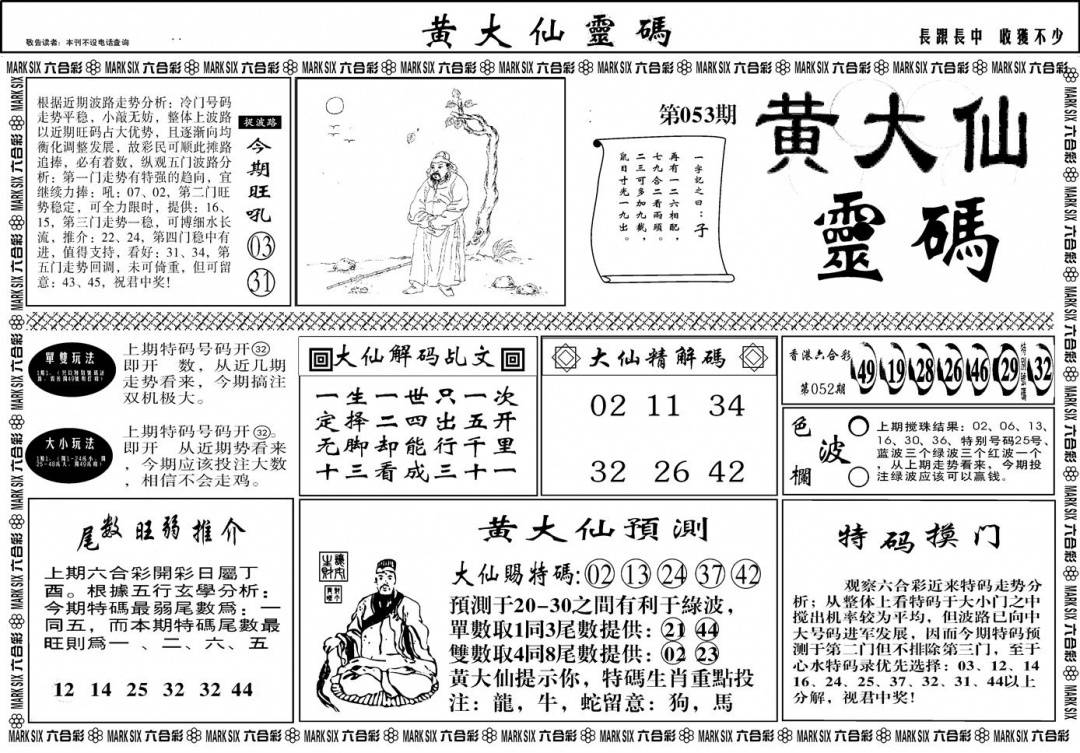 敬告读者：本刊不设电话查询
黄大仙靈碼
長跟長中 收獲不少
MARK SIX 六合彩
根据近期波路走势分析：冷门号码
走势平稳，小敲无妨，整体上波路
以近期旺码占大优势，且逐渐向均
衡化调整发展，故彩民可顺此摊路
追捧，必有着数，纵观五门波路分
析：第一门走势有特强的趋向，宜
继续力捧：吼：07、02，第二门旺
势稳定，可全力限时，提供：16、
15，第三门走势一稳，可博细水长
流，推介：22、24，第四门稳中有
进，值得支持，看好：31、34，第
五门走势回调，未可倚重，但可留
意：43、45，祝君中奖！
捉波路
今期旺吼
03
31
第053期
一字記之曰：子
再有一二六相配，
七九合二看兩頭。
二三可多加九數，
鼠目寸光一九出。
黄大仙
靈碼
單雙玩法
上期特码号码开㉜
即开 数，从近几期
走势看来，今期搞注
双机极大。
大小玩法
上期特码号码开㉜。
即开 从近期势看来
，今期应该投注大数
，相信不会走鸡。
大仙解码乩文
一生一世只一次
定择二四出五开
无脚却能行千里
十三看成三十一
大仙精解碼
02 11 34
32 26 42
香港六合彩
第052期
49 19 28 26 46 29 特别號碼 32
色波欄
上期搅珠结果：02、06、13、
16、30、36、特别号码25号、
蓝波三个绿波三个红波一个
，从上期走势看来，今期投
注绿波应该可以赢钱。
尾数旺弱推介
上期六合彩開彩日屬丁
酉。根據五行玄學分析：
今期特碼最弱尾數爲：一
同五，而本期特碼尾數最
旺則爲一 、二、六、五
12 14 25 32 32 44
黄大仙預測
大仙賜特碼：02 13 24 37 42
預測于20-30之間有利于綠波，
單數取1同3尾數提供：21 44
雙數取4同8尾數提供：02 23
黄大仙提示你，特碼生肖重點投
注：龍，牛，蛇留意：狗，馬
特码摸门
观察六合彩近来特码走势分
析；从整体上看特码于大小门之中
搅出机率较为平均，但波路已向中
大号码进军发展，因而今期特码预
测于第二门但不排除第三门，至于
心水特码录优先选择：03、12、14
16、24、25、37、32、31、44以上
分解，视君中奖！